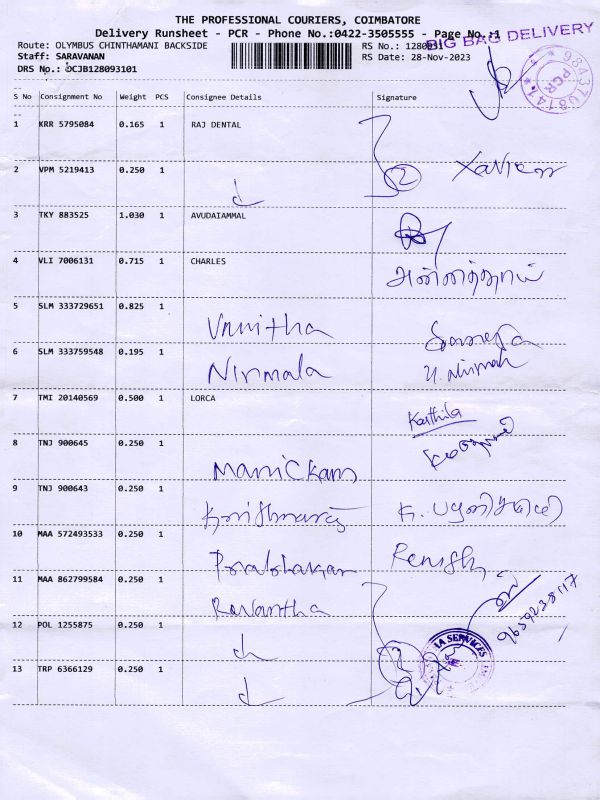 THE PROFESSIONAL COURIERS, COIMBATORE
Delivery Runsheet - PCR - Phone No.:0422-3505555 - Page No.:1
BIG BAG DELIVERY
Route: OLYMBUS CHINTHAMANI BACKSIDE RS No.:
Staff: SARAVANAN RS Date: 28-Nov-2023
DRS No.: DCJB128093101
PCR
S No Consignment No Weight PCS Consignee Details Signature
1 KRR 5795084 0.165 1 RAJ DENTAL
2 VPM 5219413 0.250 1 2 Xavier
3 TKY 883525 1.030 1 AVUDAIAMMAL
4 VLI 7006131 0.715 1 CHARLES அன்னத்தாய்
5 SLM 333729651 0.825 1 Vanitha
6 SLM 333759548 0.195 1 Nirmala
7 TMI 20140569 0.500 1 LORCA Karthika
8 TNJ 900645 0.250 1 Manickam
9 TNJ 900643 0.250 1
10 MAA 572493533 0.250 1 Prabhakar
11 MAA 862799584 0.250 1 Ravantha
12 POL 1255875 0.250 1 2
13 TRP 6366129 0.250 1